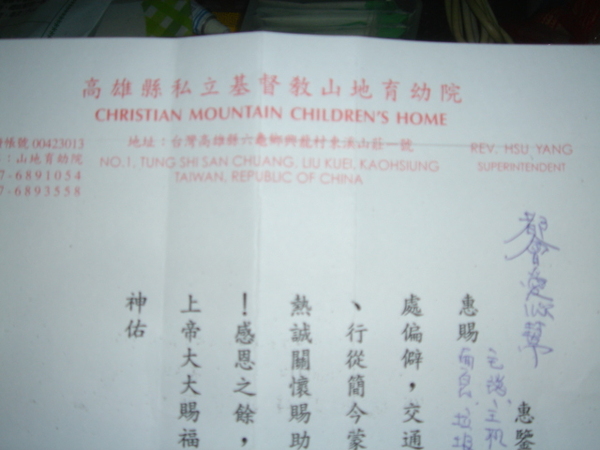 高雄縣私立基督教山地育幼院
CHRISTIAN MOUNTAIN CHILDREN'S HOME
帳號 00423013
：山地育幼院
7-6891054
7-6893558
地址：台灣高雄縣六龜鄉興龍村東溪山莊一號
NO.1, TUNG SHI SAN CHUANG, LIU KUEI, KAOHSIUNG
TAIWAN, REPUBLIC OF CHINA
REV. HSU, YANG
SUPERINTENDENT
惠鑒
惠賜
處偏僻，交通
、行從簡今蒙
熱誠關懷賜助
！感恩之餘，
上帝大大賜福
神佑